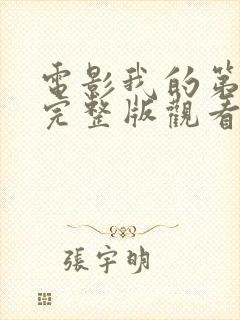 電影我的第
完整版觀看
張宇明